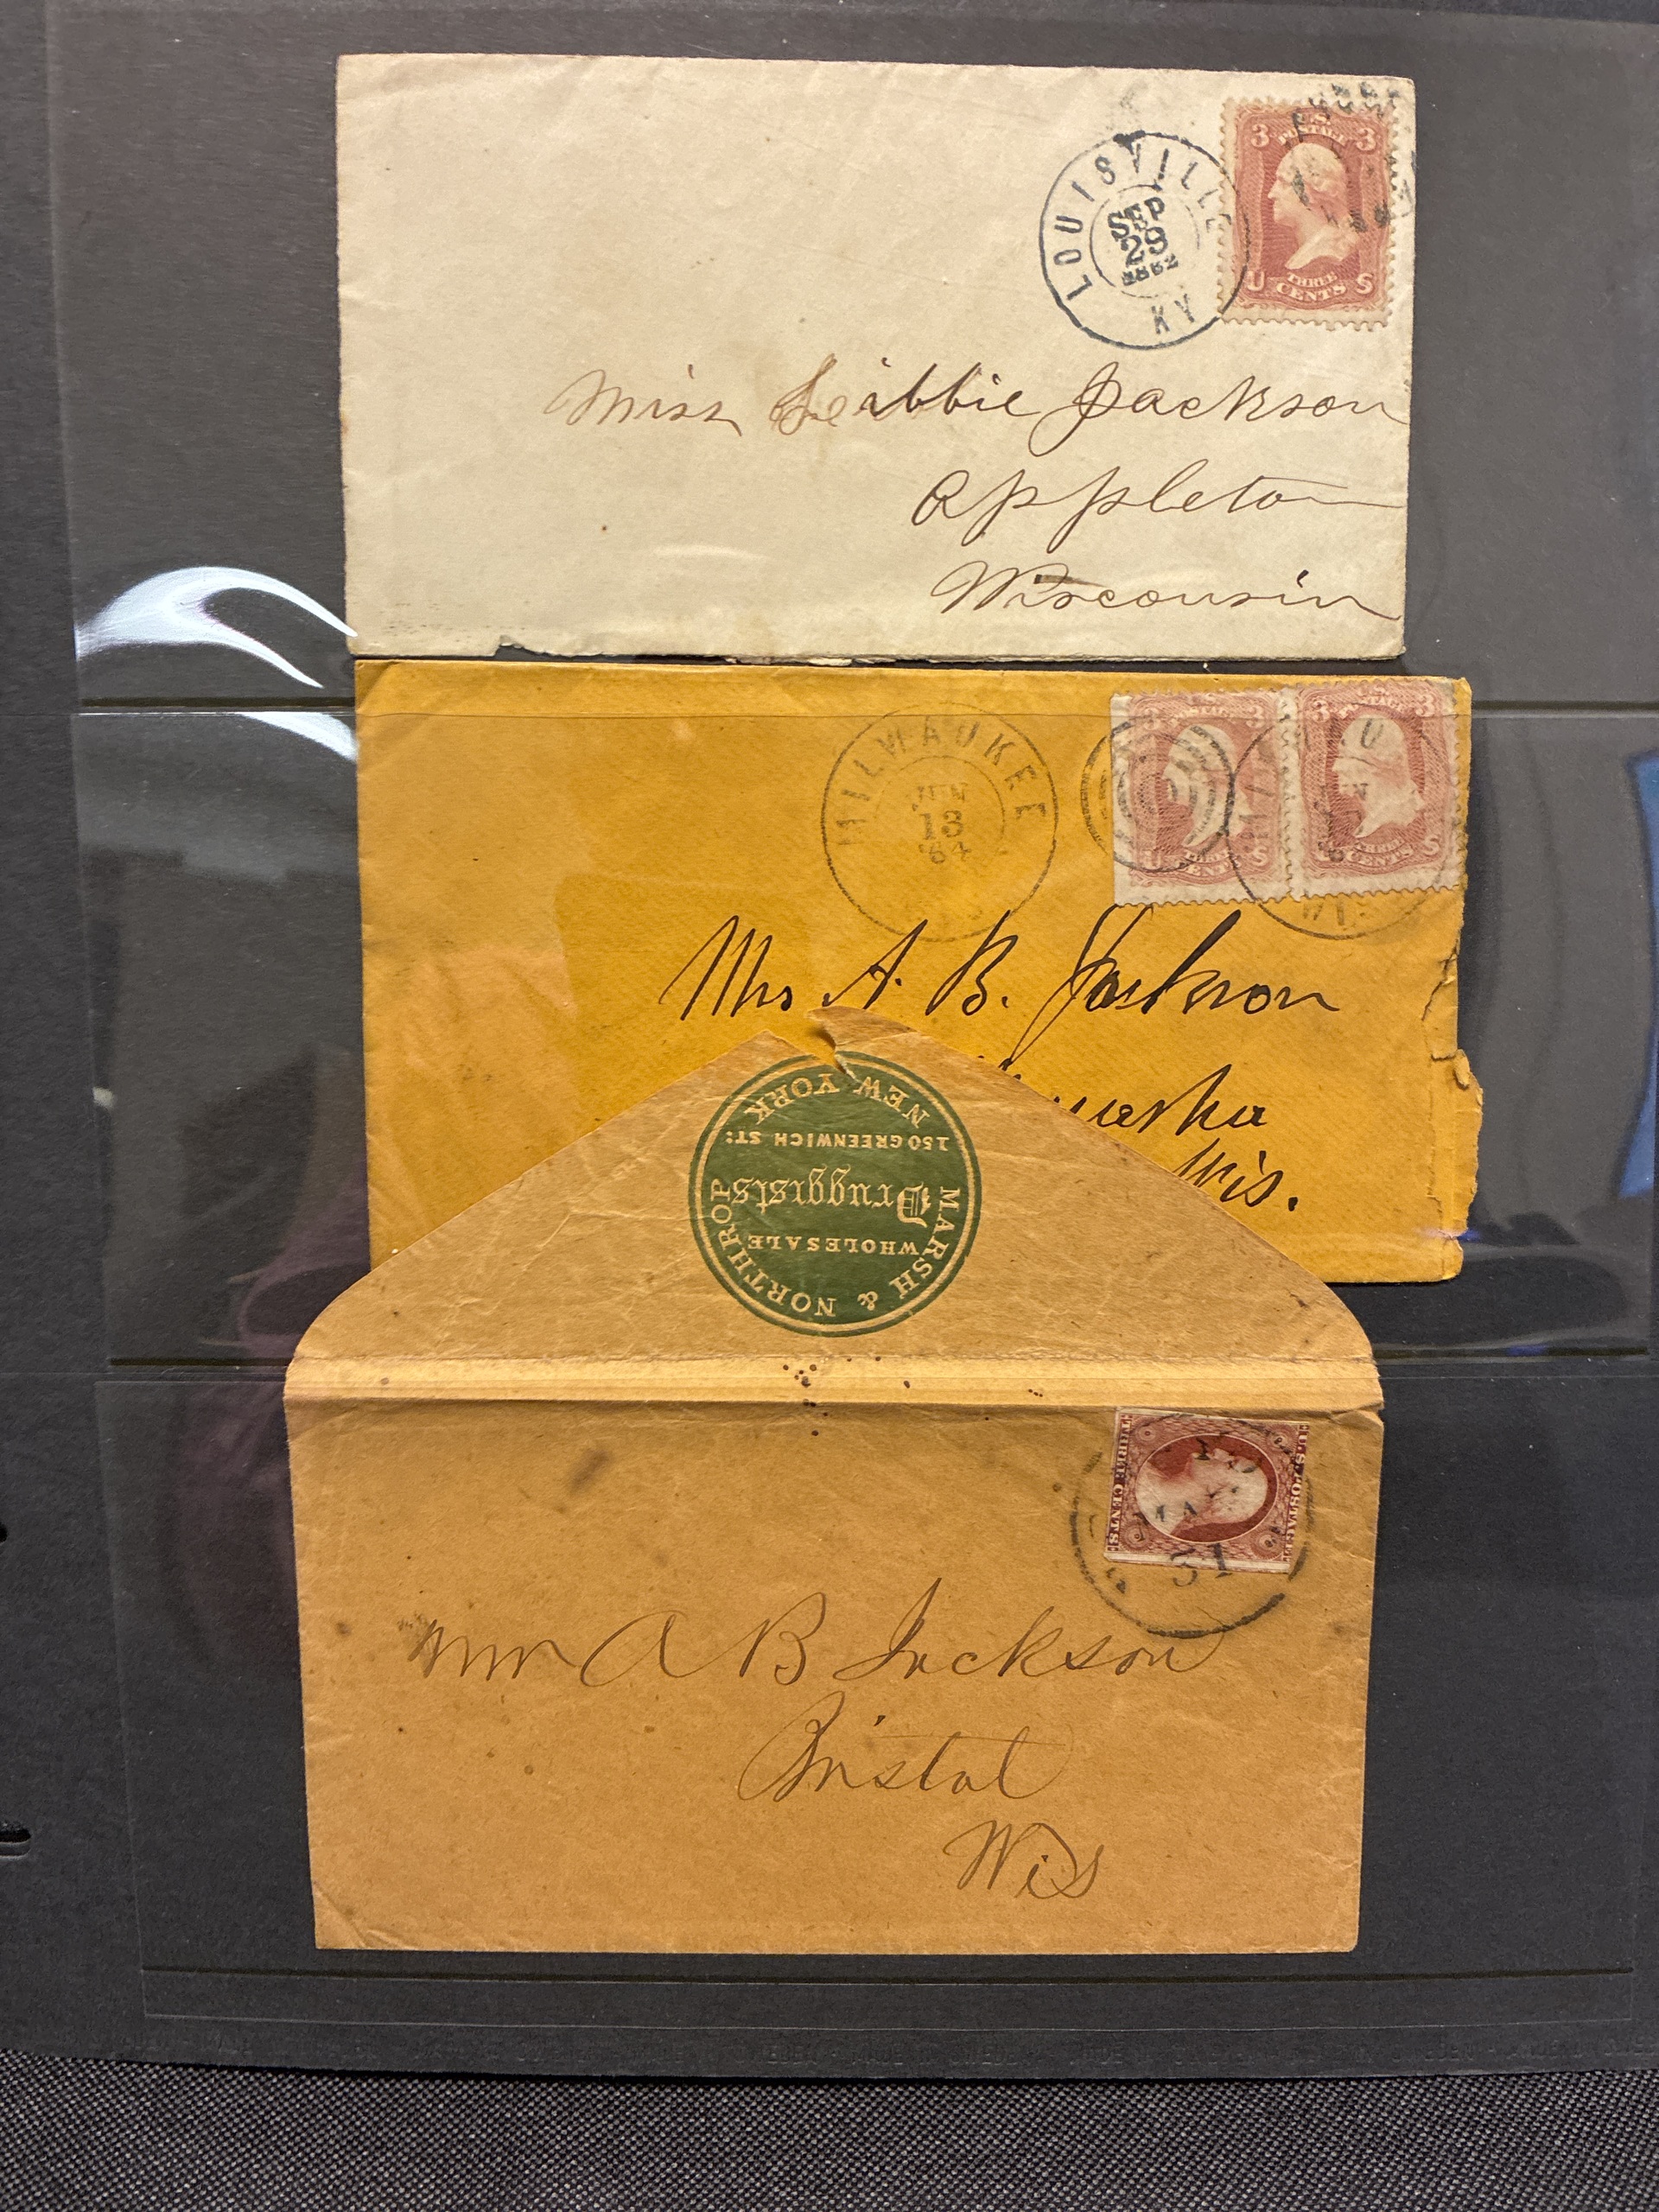 LOUISVILLE
SEP
29
1862
KY
U.S.
3 POSTAGE 3
U THREE S
CENTS
Miss Libbie Jackson
Appleton
Wisconsin
MILWAUKEE
JUN
13
'64
3 POSTAGE 3
U THREE S
CENTS
3 POSTAGE 3
THREE S
CENTS
WIS
Mrs A. B. Jackson
Wis.
MARSH & NORTHROP
WHOLESALE
Druggists
150 GREENWICH ST:
NEW YORK
U.S. POSTAGE
THREE CENTS
MAY
31
A B Jackson
Bristol
Wis